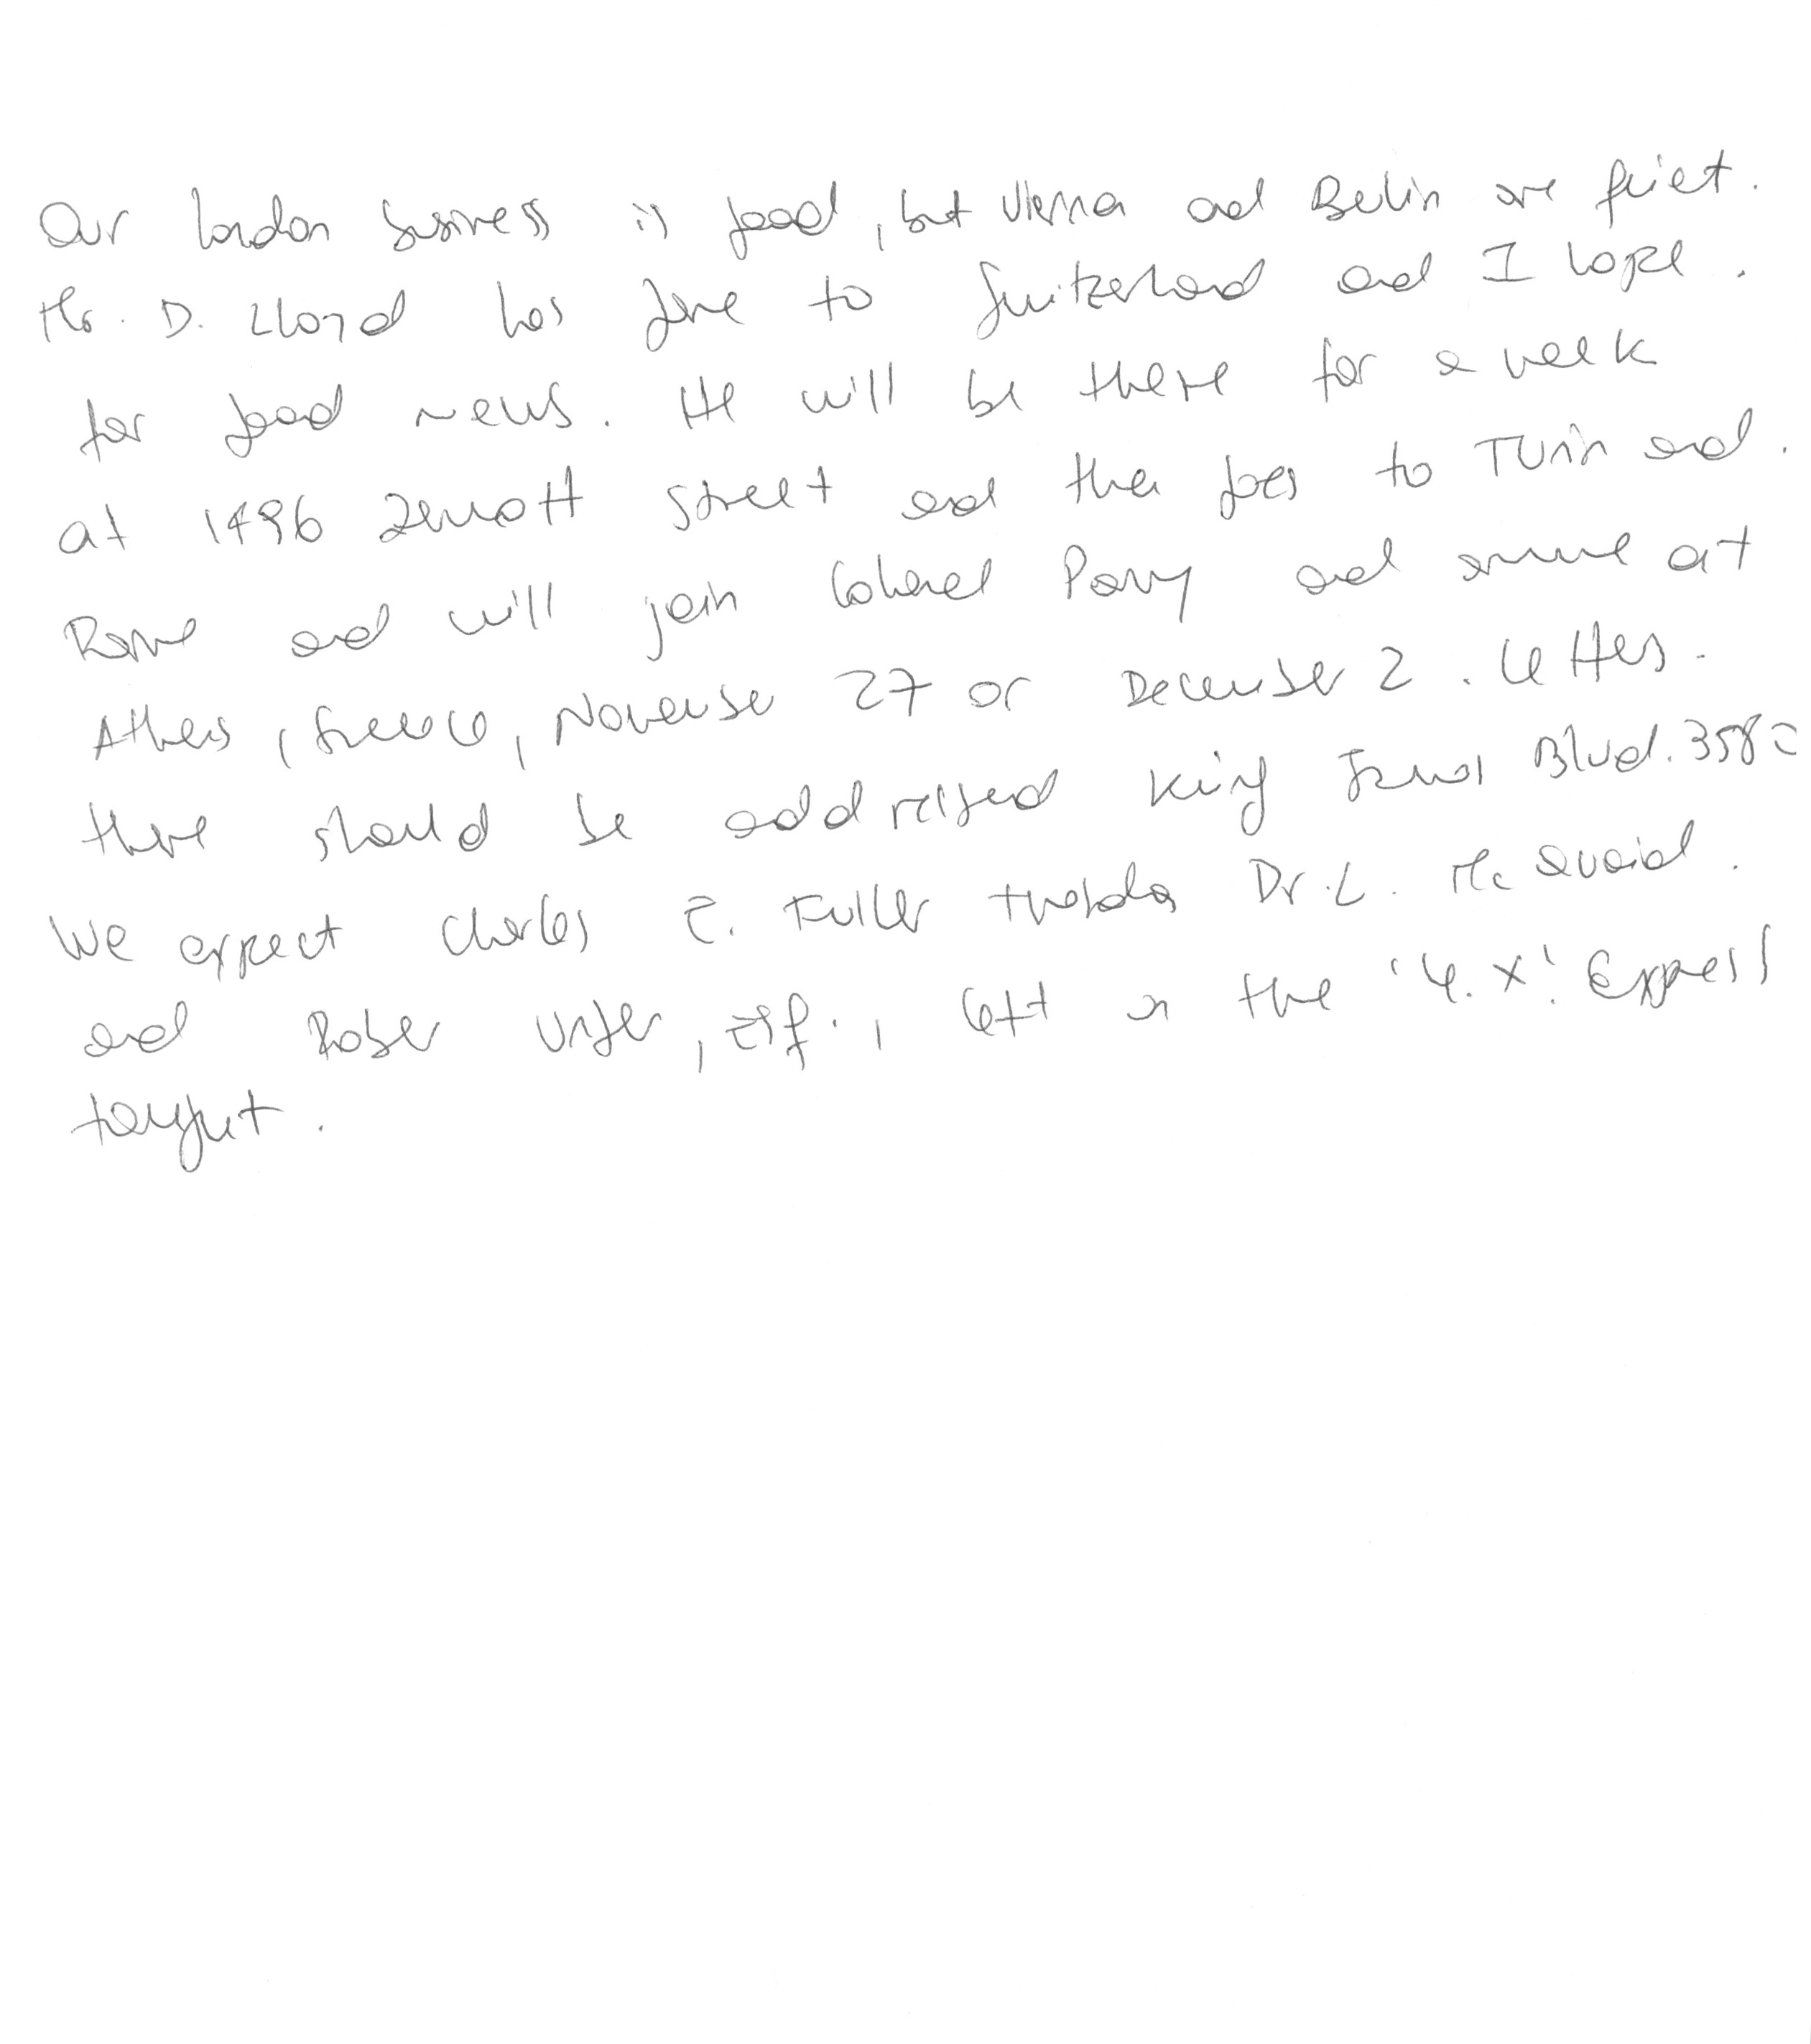 Our London business is good, but Vienna and Berlin are quiet.
Mr. D. Lloyd has gone to Switzerland and I hope.
for good news. He will be there for a week
at 1496 Zermott Street and then goes to Turin and.
Rome and will join Colonel Parry and arrive at
Athens, Greece, November 27 or December 2. Letters.
there should be addressed King James Blvd. 3580
We expect Charles E. Fuller Dr. L. Mc Quaid.
and Robert Unger, Esq., left on the "Y.X." Express
tonight.